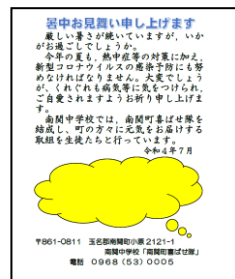 暑中お見舞い申し上げます
厳しい暑さが続いていますが、いか
がお過ごしでしょうか。
今年の夏も、熱中症等の対策に加え、
新型コロナウイルスの感染予防にも努
めなければなりません。大変でしょう
が、くれぐれも病気等に気をつけられ、
ご自愛されますようお祈り申し上げま
す。
南関中学校では、南関町喜ばせ隊を
結成し、町の方々に元気をお届けする
取組を生徒たちと行っています。
令和4年7月
〒861-0811 玉名郡南関町小原2121-1
南関中学校「南関町喜ばせ隊」
電話 0968(53)0005